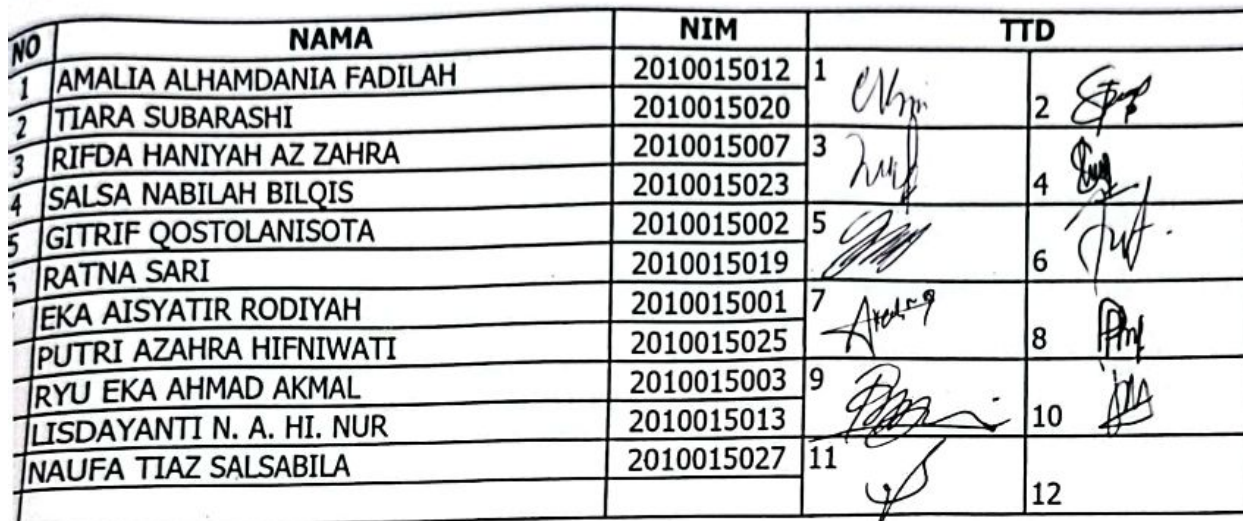 NO NAMA NIM TTD
1 AMALIA ALHAMDANIA FADILAH 2010015012 1
2 TIARA SUBARASHI 2010015020 2
3 RIFDA HANIYAH AZ ZAHRA 2010015007 3
4 SALSA NABILAH BILQIS 2010015023 4
5 GITRIF QOSTOLANISOTA 2010015002 5
RATNA SARI 2010015019 6
EKA AISYATIR RODIYAH 2010015001 7
PUTRI AZAHRA HIFNIWATI 2010015025 8
RYU EKA AHMAD AKMAL 2010015003 9
LISDAYANTI N. A. HI. NUR 2010015013 10
NAUFA TIAZ SALSABILA 2010015027 11
12